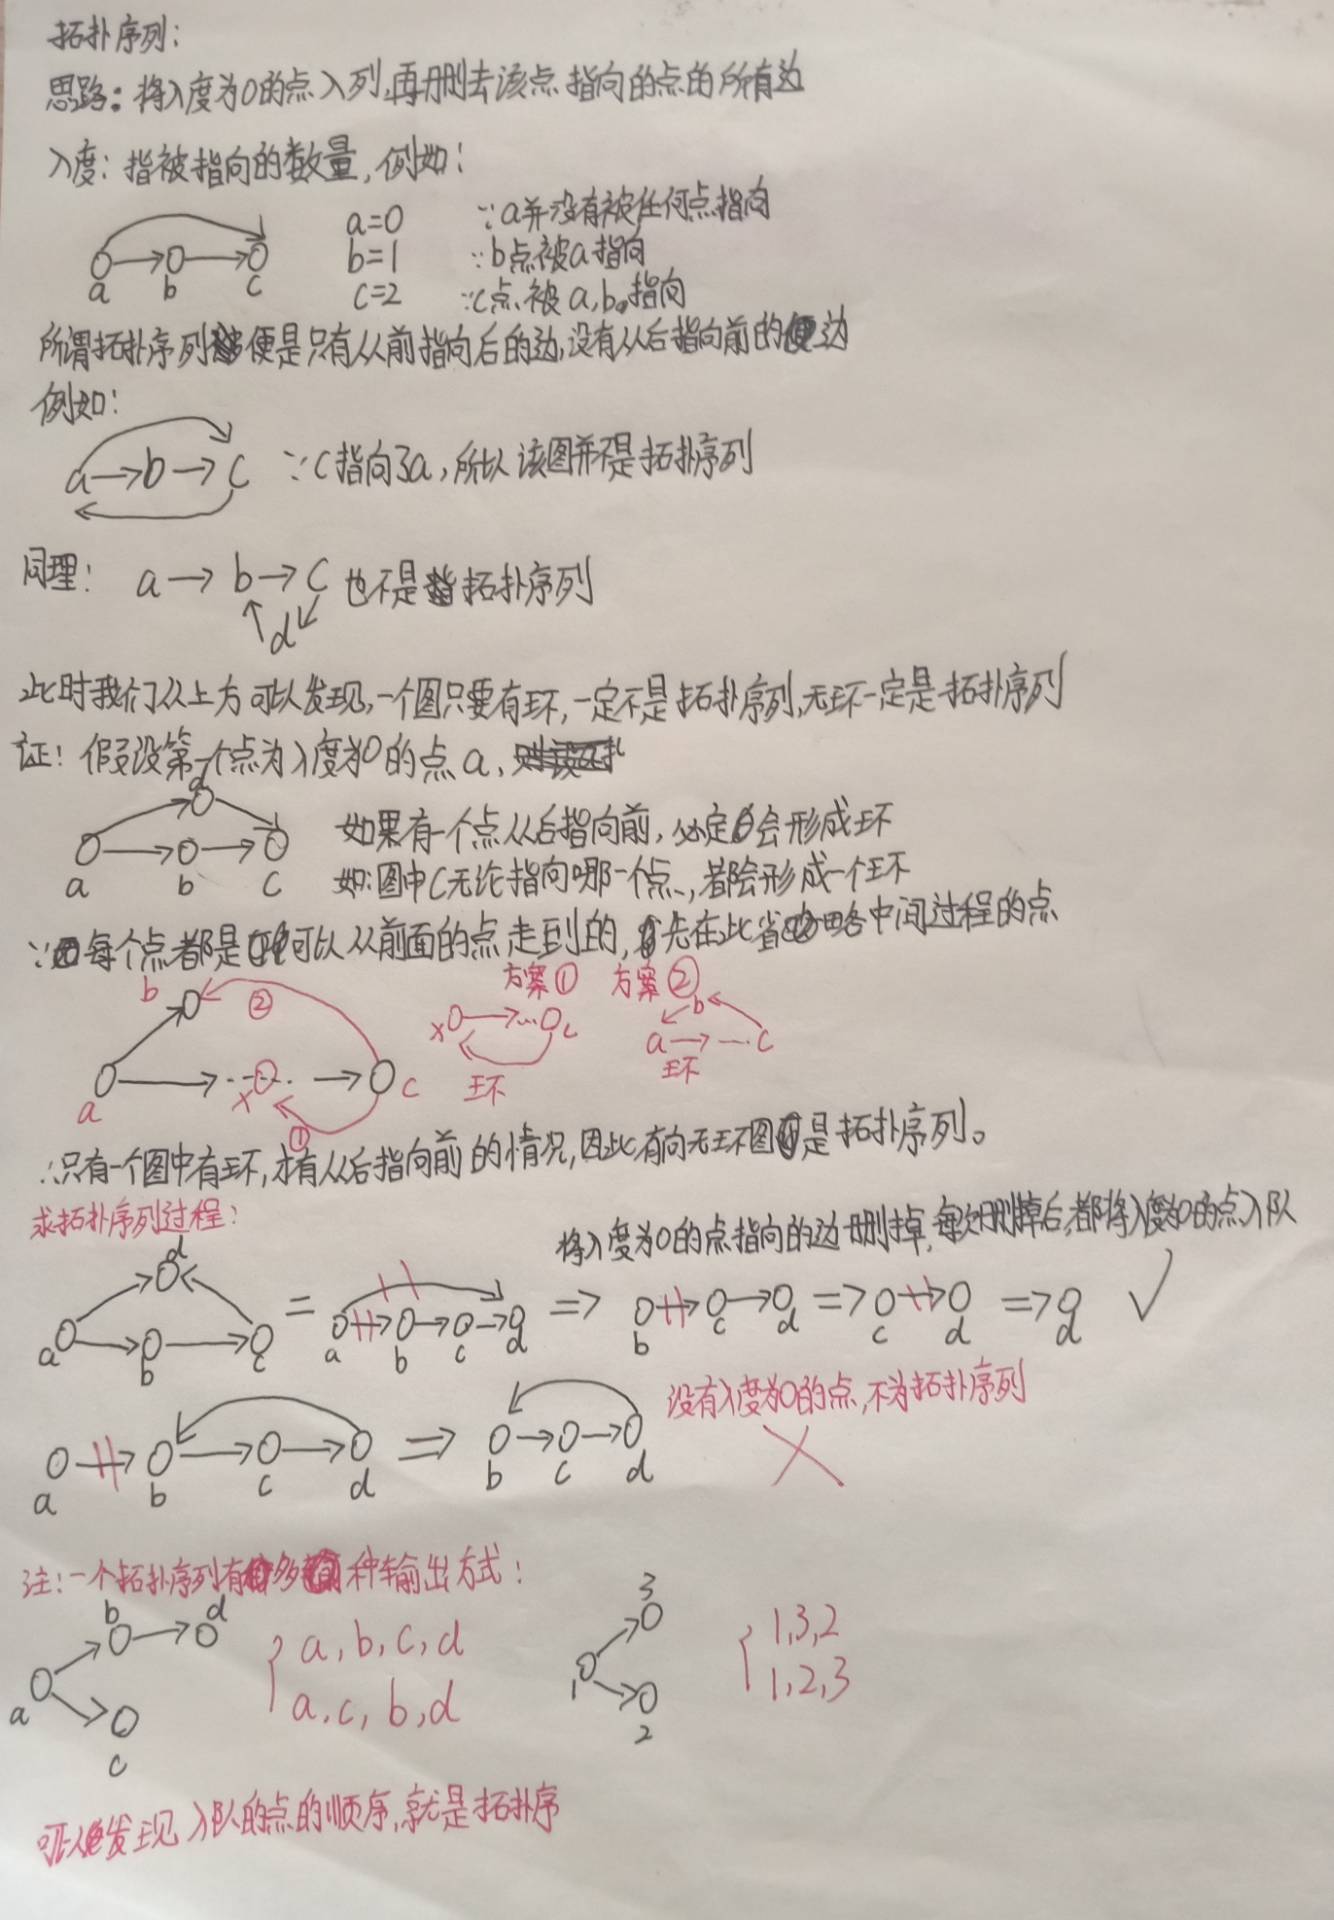 拓扑序列：
思路：将入度为0的点入列，再删去该点指向的点的所有边
入度：指被指向的数量，例如：
a=0 ∵a并没有被任何点指向
b=1 ∵b点被a指向
c=2 ∵c点被a,b指向
a b c
所谓拓扑序列便是只有从前指向后的边，没有从后指向前的边
例如：
a→b→c ∵c指向了a，所以该图并不是拓扑序列
同理： a→b→c 也不是拓扑序列
d
此时我们从上方可以发现，一个图只要有环，一定不是拓扑序列，无环一定是拓扑序列
证：假设第一个点为入度为0的点a，
d
如果有一个点从后指向前，必定会形成环
a b c
如：图中C无论指向哪一个点，都会形成一个环
∵每个点都是可以从前面的点走到的，先在此省略中间过程的点
b ② 方案① 方案②
x→…c b
a→…c
a x c 环 环
①
∴只有一个图中有环，才有从后指向前的情况，因此有向无环图是拓扑序列。
求拓扑序列过程：
将入度为0的点指向的边删掉，每次删掉后，都将入度为0的点入队
d
a b c = a b c d => b c d => c d => d ✓
没有入度为0的点，不为拓扑序列
a b c d => b c d ×
注：一个拓扑序列有多种输出方式：
b d 3
a,b,c,d 1,3,2
a 1
a,c,b,d 1,2,3
c 2
可以发现入队的点的顺序，就是拓扑序